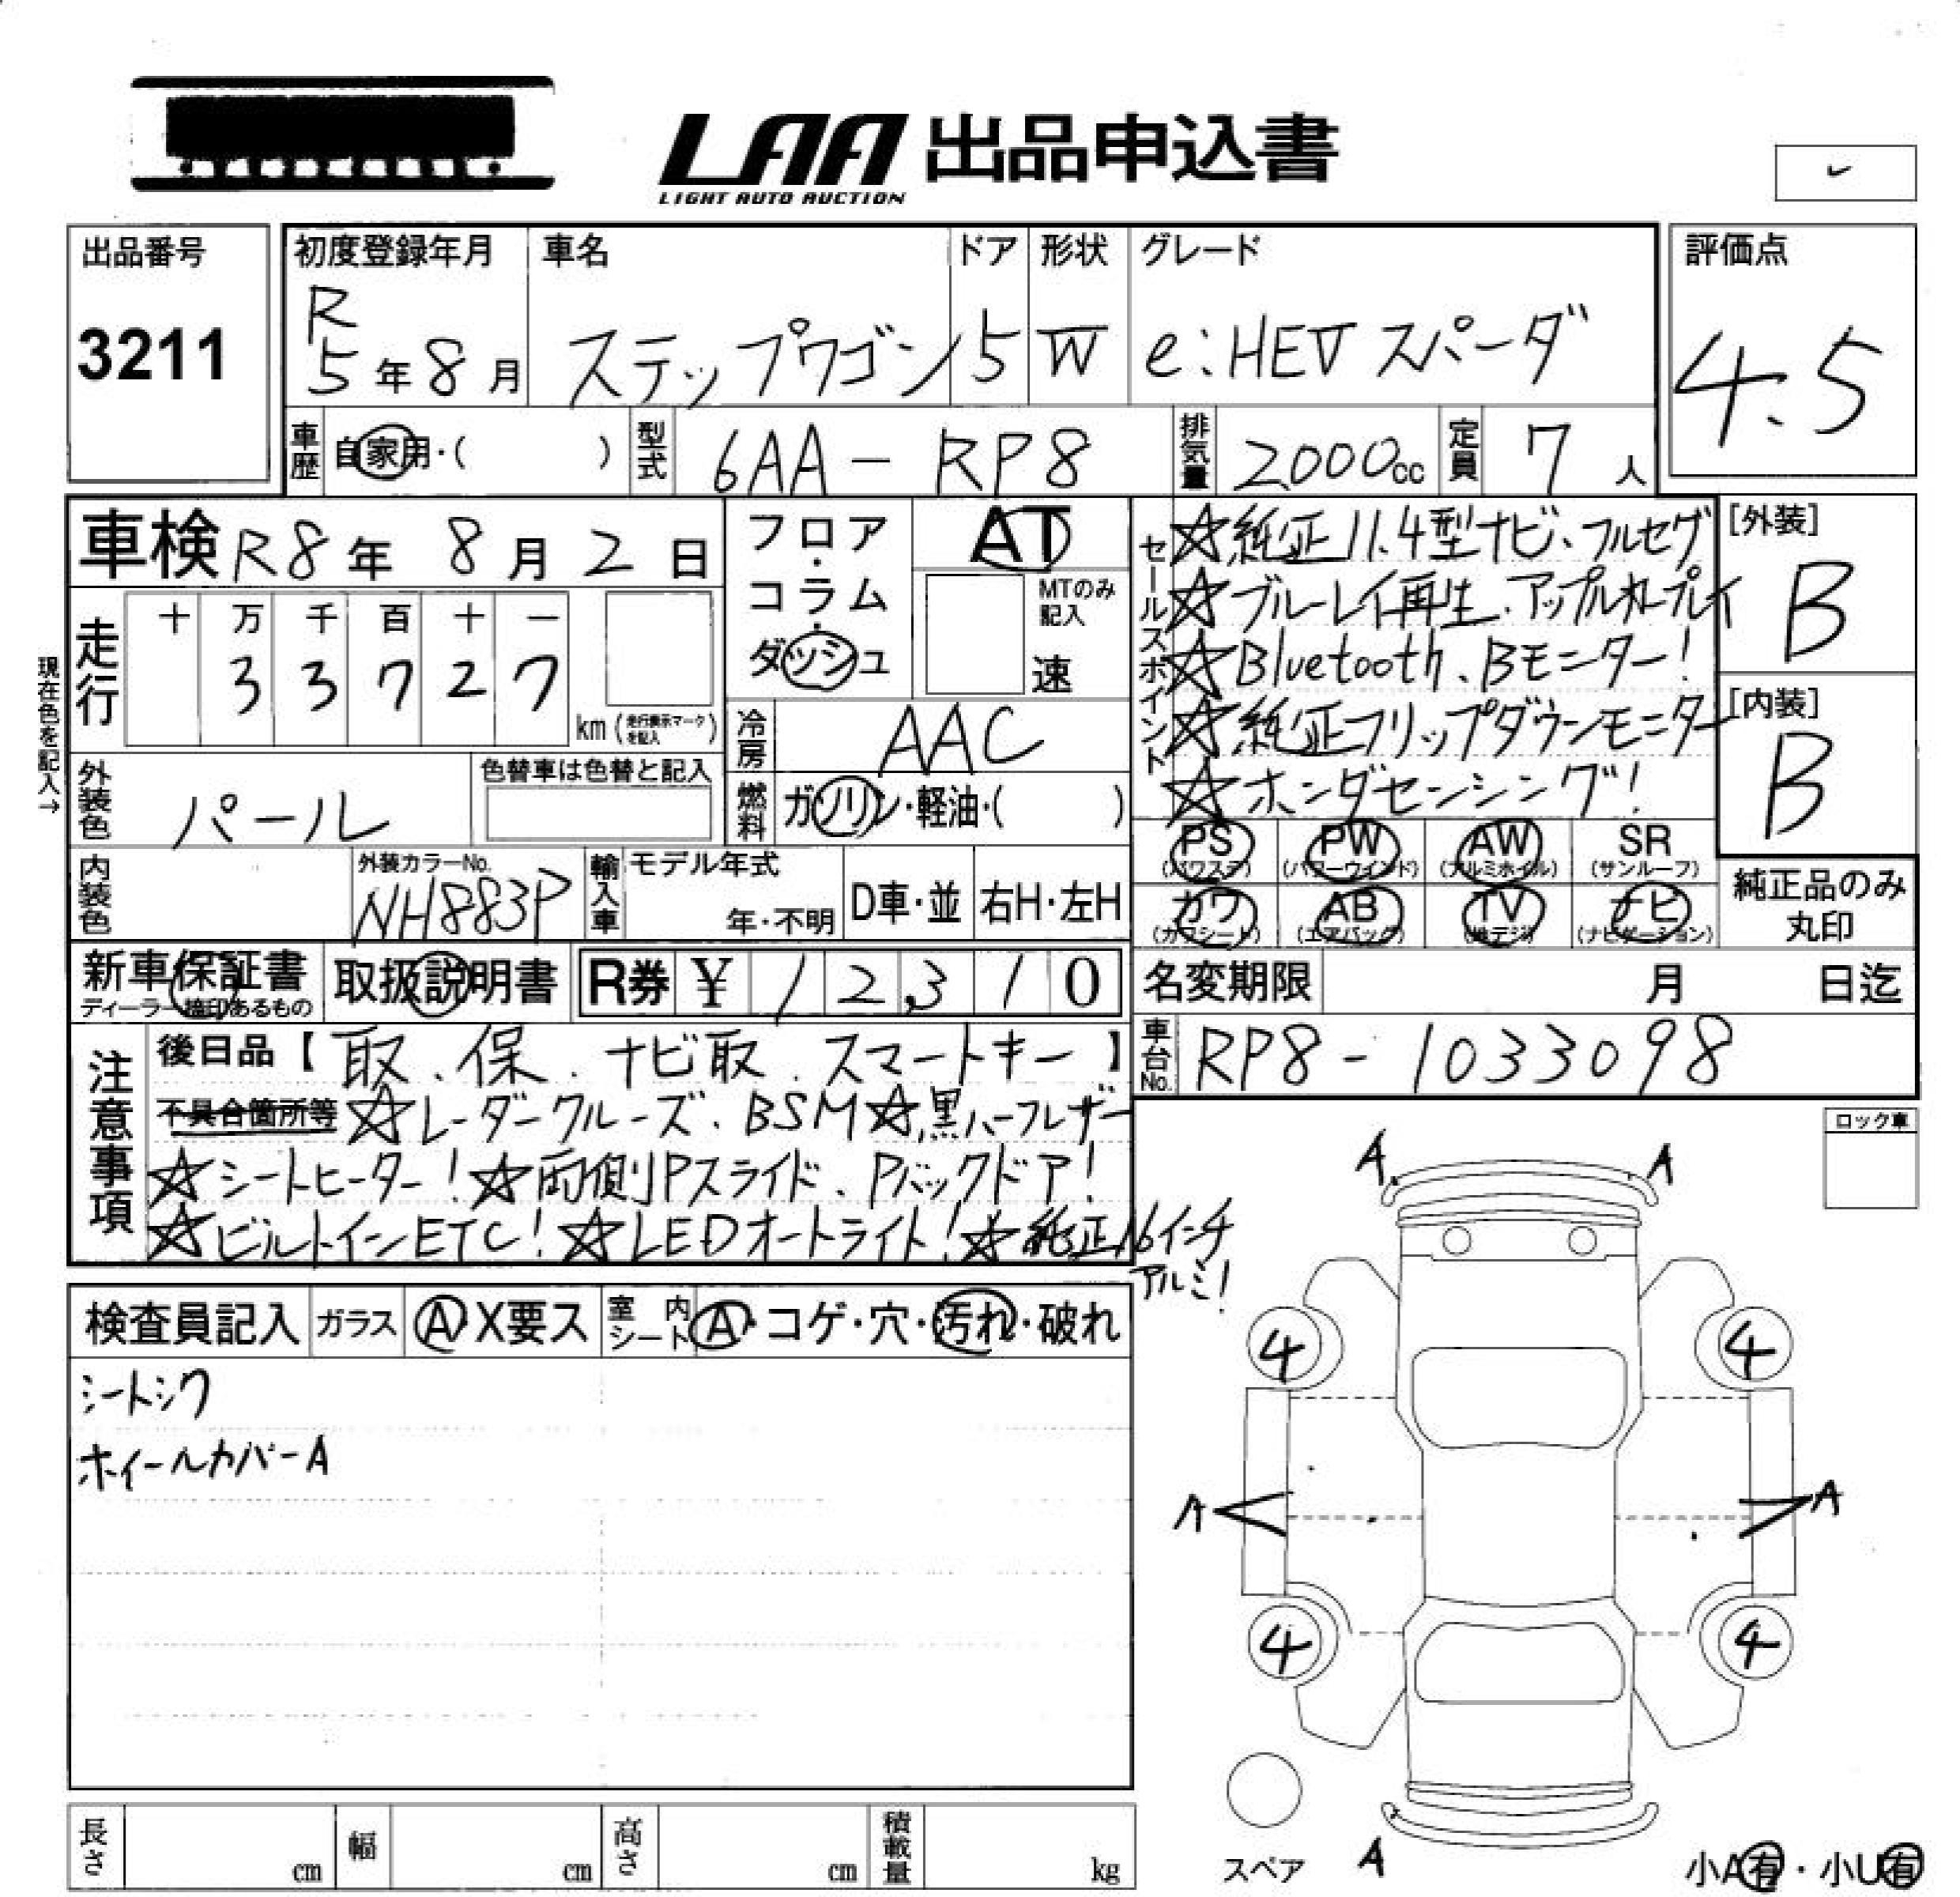 LAA 出品申込書
LIGHT AUTO AUCTION
出品番号
3211
初度登録年月
R
5年8月
車名
ステップワゴン
ドア
5
形状
W
グレード
e:HEV スパーダ
評価点
4.5
車歴 自家用・( )
型式 6AA-RP8
排気量 2000cc
定員 7人
車検 R8年 8月 2日
走行
十 万 千 百 十 一
3 3 7 2 7
km (走行表示マークを記入)
現在色を記入→
外装色 パール
色替車は色替と記入
内装色
外装カラーNo.
NH883P
フロア・コラム・ダッシュ
AT
MTのみ記入
速
冷房 AAC
燃料 ガソリン・軽油・( )
輸入車 モデル年式
年・不明
D車・並
右H・左H
セールスポイント
☆純正11.4型ナビ、フルセグ
☆ブルーレイ再生、アップルカープレイ
☆Bluetooth、Bモニター!
☆純正フリップダウンモニター
☆ホンダセンシング!
[外装]
B
[内装]
B
PS (パワステ)
PW (パワーウインド)
AW (アルミホイル)
SR (サンルーフ)
カワ (カワシート)
AB (エアバック)
TV (地デジ)
ナビ (ナビゲーション)
純正品のみ
丸印
新車保証書
ディーラー捺印あるもの
取扱説明書
R券 ¥ 12,310
名変期限 月 日迄
車台No. RP8-1033098
注意事項
後日品【取、保、ナビ取、スマートキー】
不具合箇所等 ☆レーダークルーズ、BSM☆黒ハーフレザー
☆シートヒーター!☆両側Pスライド、Pバックドア!
☆ビルトインETC!☆LEDオートライト!☆純正16インチ
アルミ!
ロック車
検査員記入
ガラス A・X要ス
室内シート A・コゲ・穴・汚れ・破れ
シートシワ
ホイールカバーA
A A
4 4
A A
4 4
A
スペア
小A有・小U有
長さ cm
幅 cm
高さ cm
積載量 kg